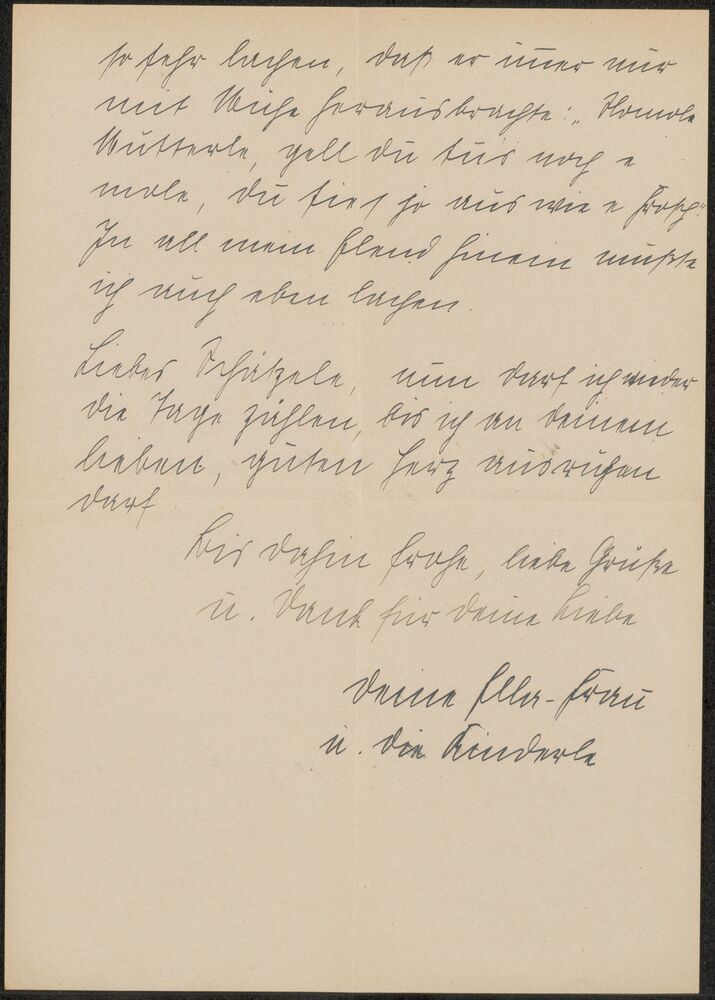 so sehr lachen, daß er im̄er nur
mit Mühe herausbrachte: „Nomole
Mutterle, gell du tus noch e
mole, du siest jo aus wie e Frosch."
In all mein Elend hinein mußte
ich auch eben lachen.
Liebes Schätzele, nun darf ich wieder
die Tage zählen, bis ich an deinem
lieben, guten Herz ausruhen
darf
Bis dahin frohe, liebe Grüße
u. Dank für deine Liebe
deine Ella-Frau
u. die Kinderle